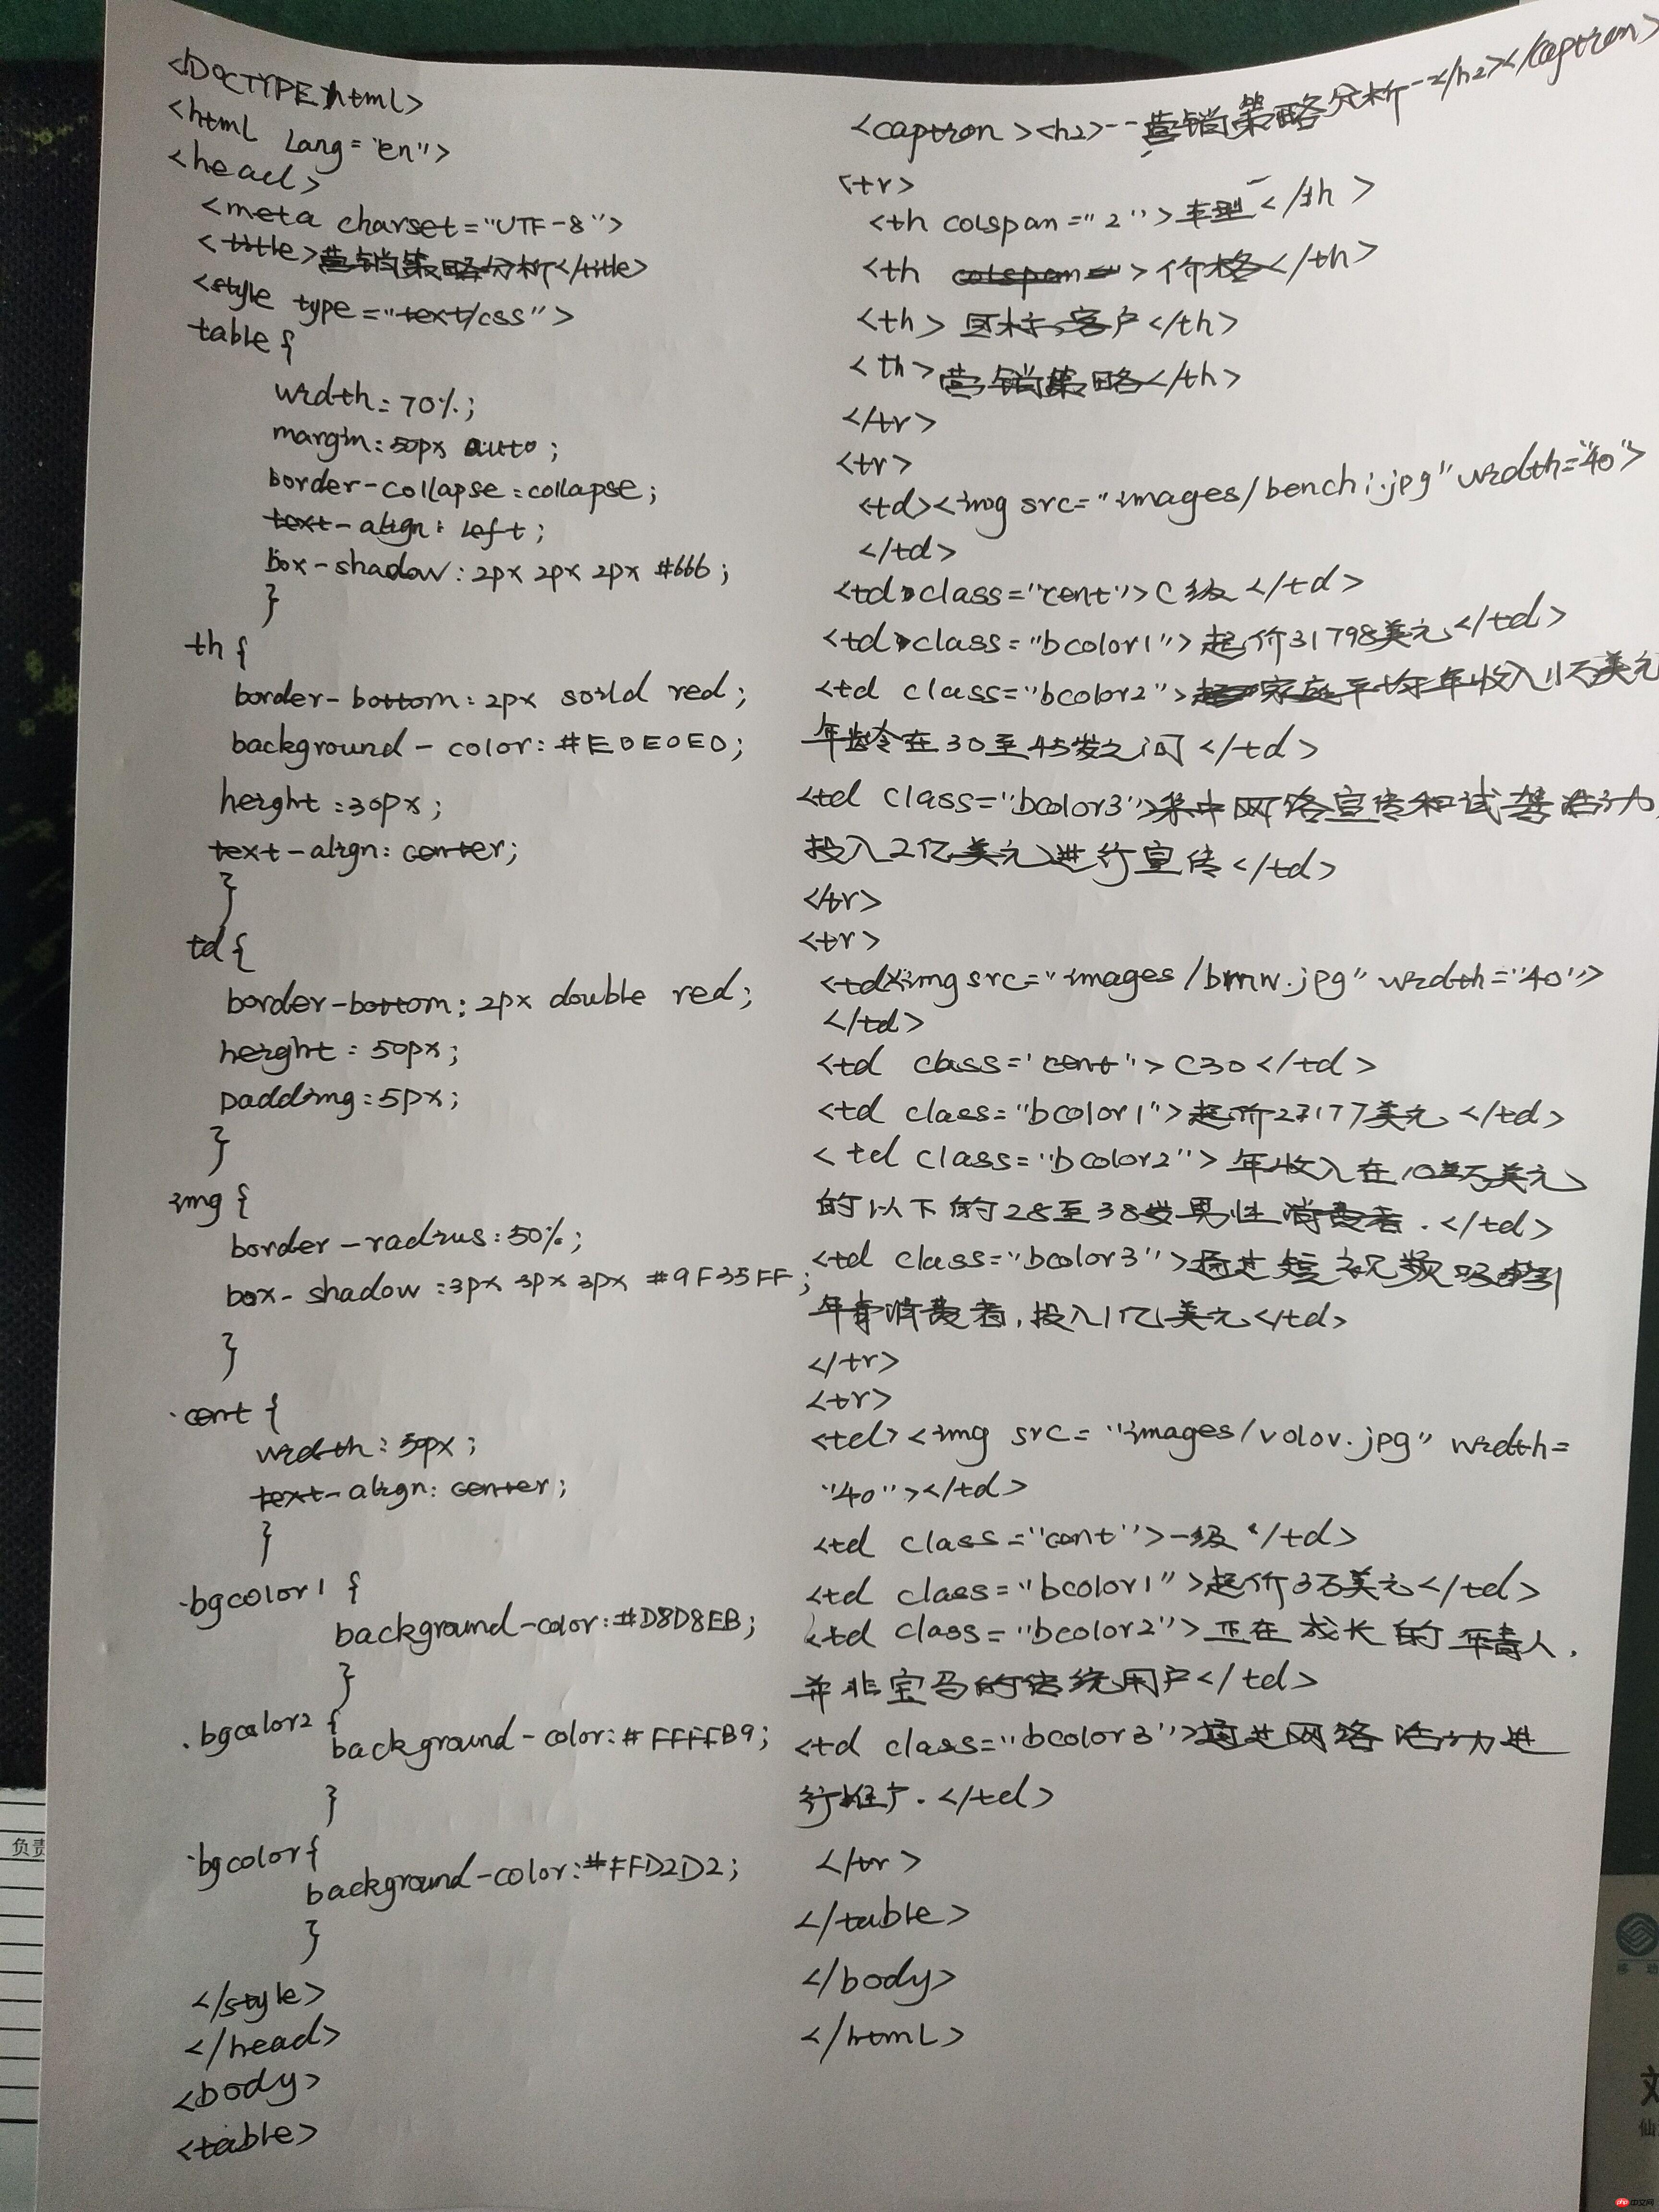 <!DOCTYPE html>
<html lang="en">
<head>
<meta charset="UTF-8">
<title>营销策略分析</title>
<style type="text/css">
table{
width:70%;
margin:50px auto;
border-collapse:collapse;
text-align:left;
box-shadow:2px 2px 2px #666;
}
th{
border-bottom:2px soild red;
background-color:#E0E0E0;
height:30px;
text-align:center;
}
td{
border-bottom:2px double red;
height:50px;
padding:5px;
}
img{
border-radius:50%;
box-shadow:3px 3px 3px #9F35FF;
}
.cent{
width:50px;
text-align:center;
}
.bgcolor1{
background-color:#D8D8EB;
}
.bgcolor2{
background-color:#FFFFB9;
}
.bgcolor{
background-color:#FFD2D2;
}
</style>
</head>
<body>
<table>
<caption><h2>--营销策略分析--</h2></caption>
<tr>
<th colspan="2">车型</th>
<th >价格</th>
<th>目标客户</th>
<th>营销策略</th>
</tr>
<tr>
<td><img src="images/benchi.jpg" width="40">
</td>
<td class="cent">C级</td>
<td class="bcolor1">起价31798美元</td>
<td class="bcolor2">家庭平均年收入11万美元
年龄在30至45岁之间</td>
<td class="bcolor3">集中网络宣传和试驾活动,
投入2亿美元进行宣传</td>
</tr>
<tr>
<td><img src="images/bmw.jpg" width="40">
</td>
<td class='cent">C30</td>
<td class="bcolor1">起价27177美元</td>
<td class="bcolor2">年收入在10万美元
的以下的28至38岁男性消费者.</td>
<td class="bcolor3">通过短视频吸引
年青消费者,投入1亿美元</td>
</tr>
<tr>
<td><img src="images/volov.jpg" width=
"40"></td>
<td class="cent">一级</td>
<td class="bcolor1">起价3万美元</td>
<td class="bcolor2">正在成长的年青人.
并非宝马的传统用户</td>
<td class="bcolor3">通过网络活动进
行推广.</td>
</tr>
</table>
</body>
</html>
负责
移动
刘
仙
php中文网